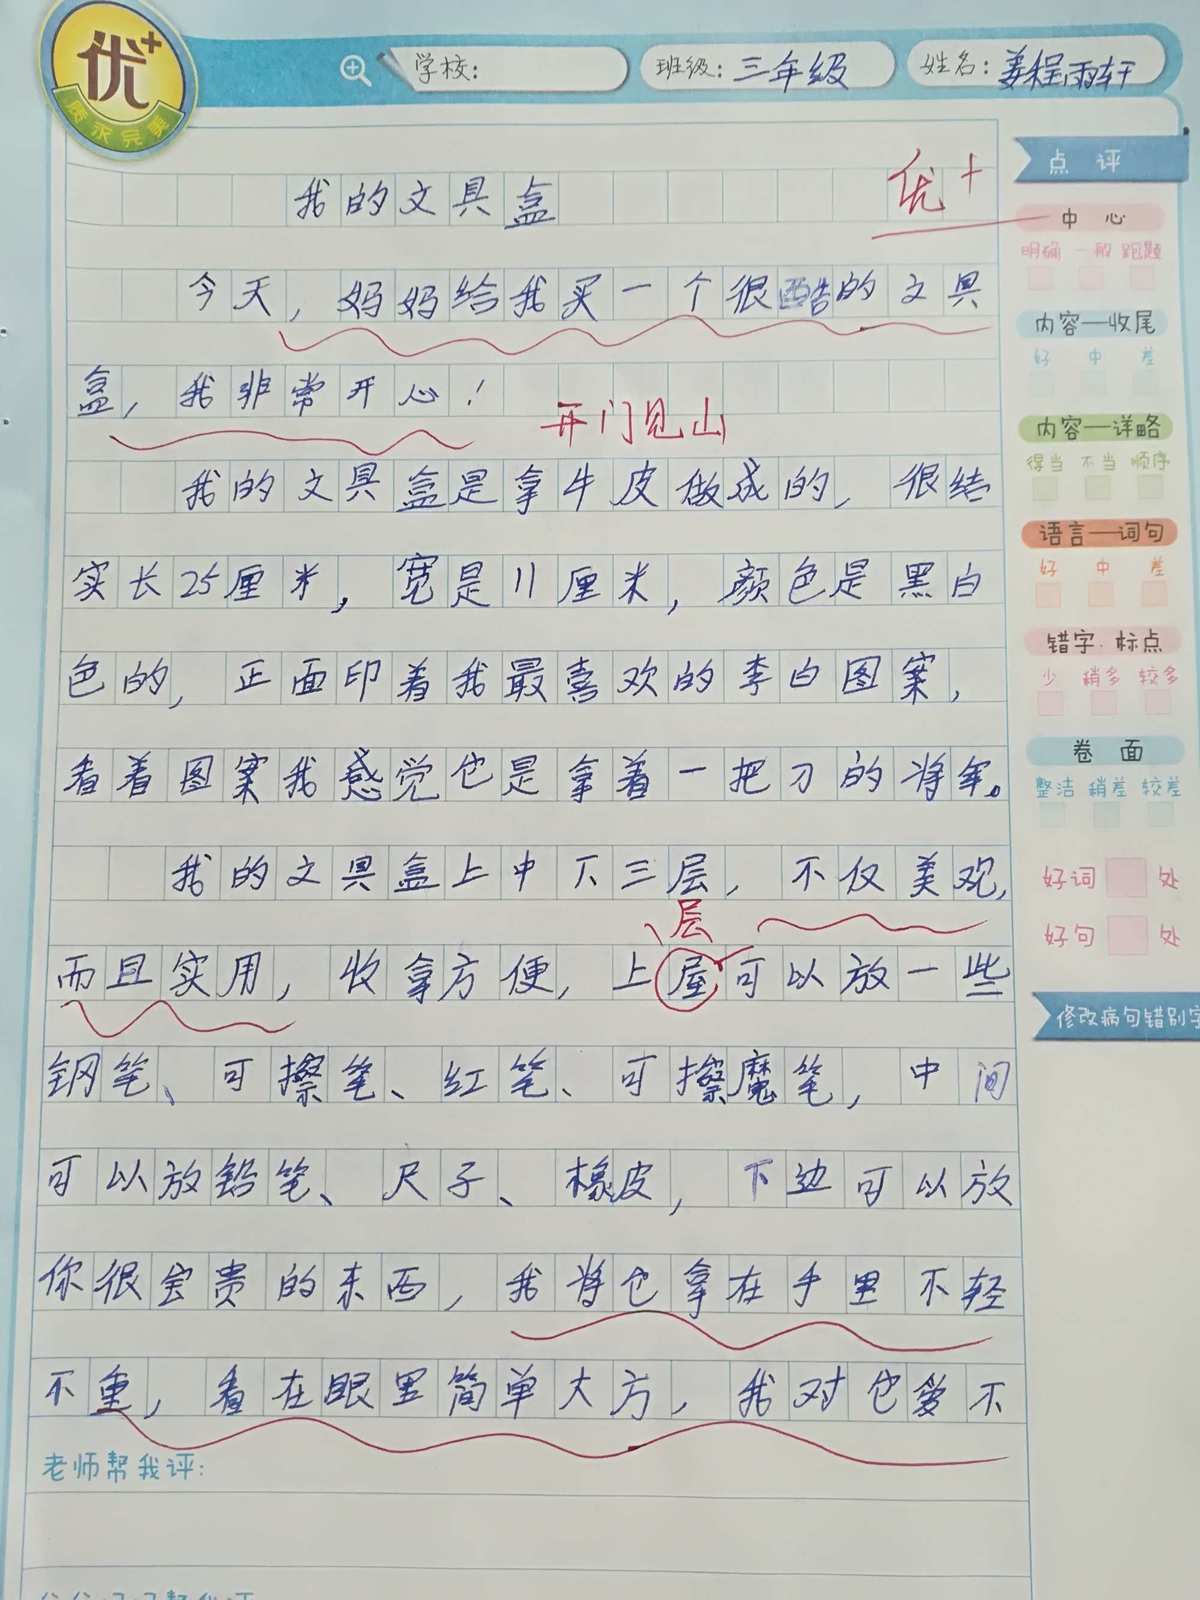 优+
质保完美
学校：
班级：三年级
姓名：姜程雨轩
我的文具盒
优+
今天，妈妈给我买一个很酷的文具
盒，我非常开心！
开门见山
我的文具盒是拿牛皮做成的，很结
实长25厘米，宽是11厘米，颜色是黑白
色的，正面印着我最喜欢的李白图案，
看着图案我感觉也是拿着一把刀的将军。
我的文具盒上中下三层，不仅美观，
层
而且实用，收拿方便，上屋可以放一些
钢笔、可擦笔、红笔、可擦魔笔，中间
可以放铅笔、尺子、橡皮，下边可以放
你很宝贵的东西，我将它拿在手里不轻
不重，看在眼里简单大方，我对它爱不
老师帮我评：
点评
中心
明确 一般 跑题
内容—收尾
好 中 差
内容—详略
得当 不当 顺序
语言—词句
好 中 差
错字·标点
少 稍多 较多
卷面
整洁 稍差 较差
好词 处
好句 处
修改病句错别字